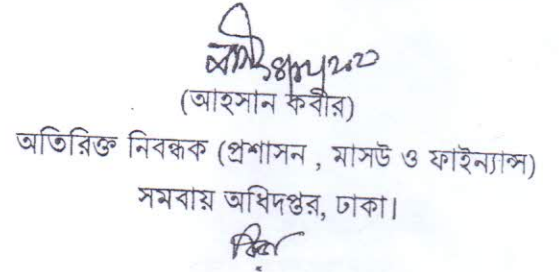 (আহসান কবীর)
অতিরিক্ত নিবন্ধক (প্রশাসন , মাসউ ও ফাইন্যান্স)
সমবায় অধিদপ্তর, ঢাকা।